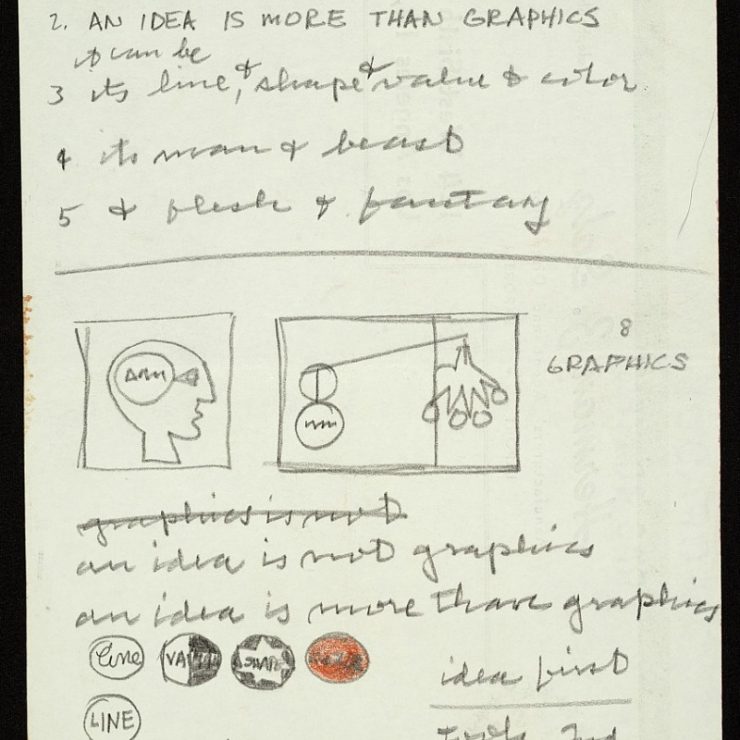 2. AN IDEA IS MORE THAN GRAPHICS
it can be
3 its line, & shape & value & color
4 its man & beast
5 & flesh & fantasy
8
GRAPHICS
graphics is not
an idea is not graphics
an idea is more than graphics
line VALUE SHAPE
idea first
LINE
tools 2nd